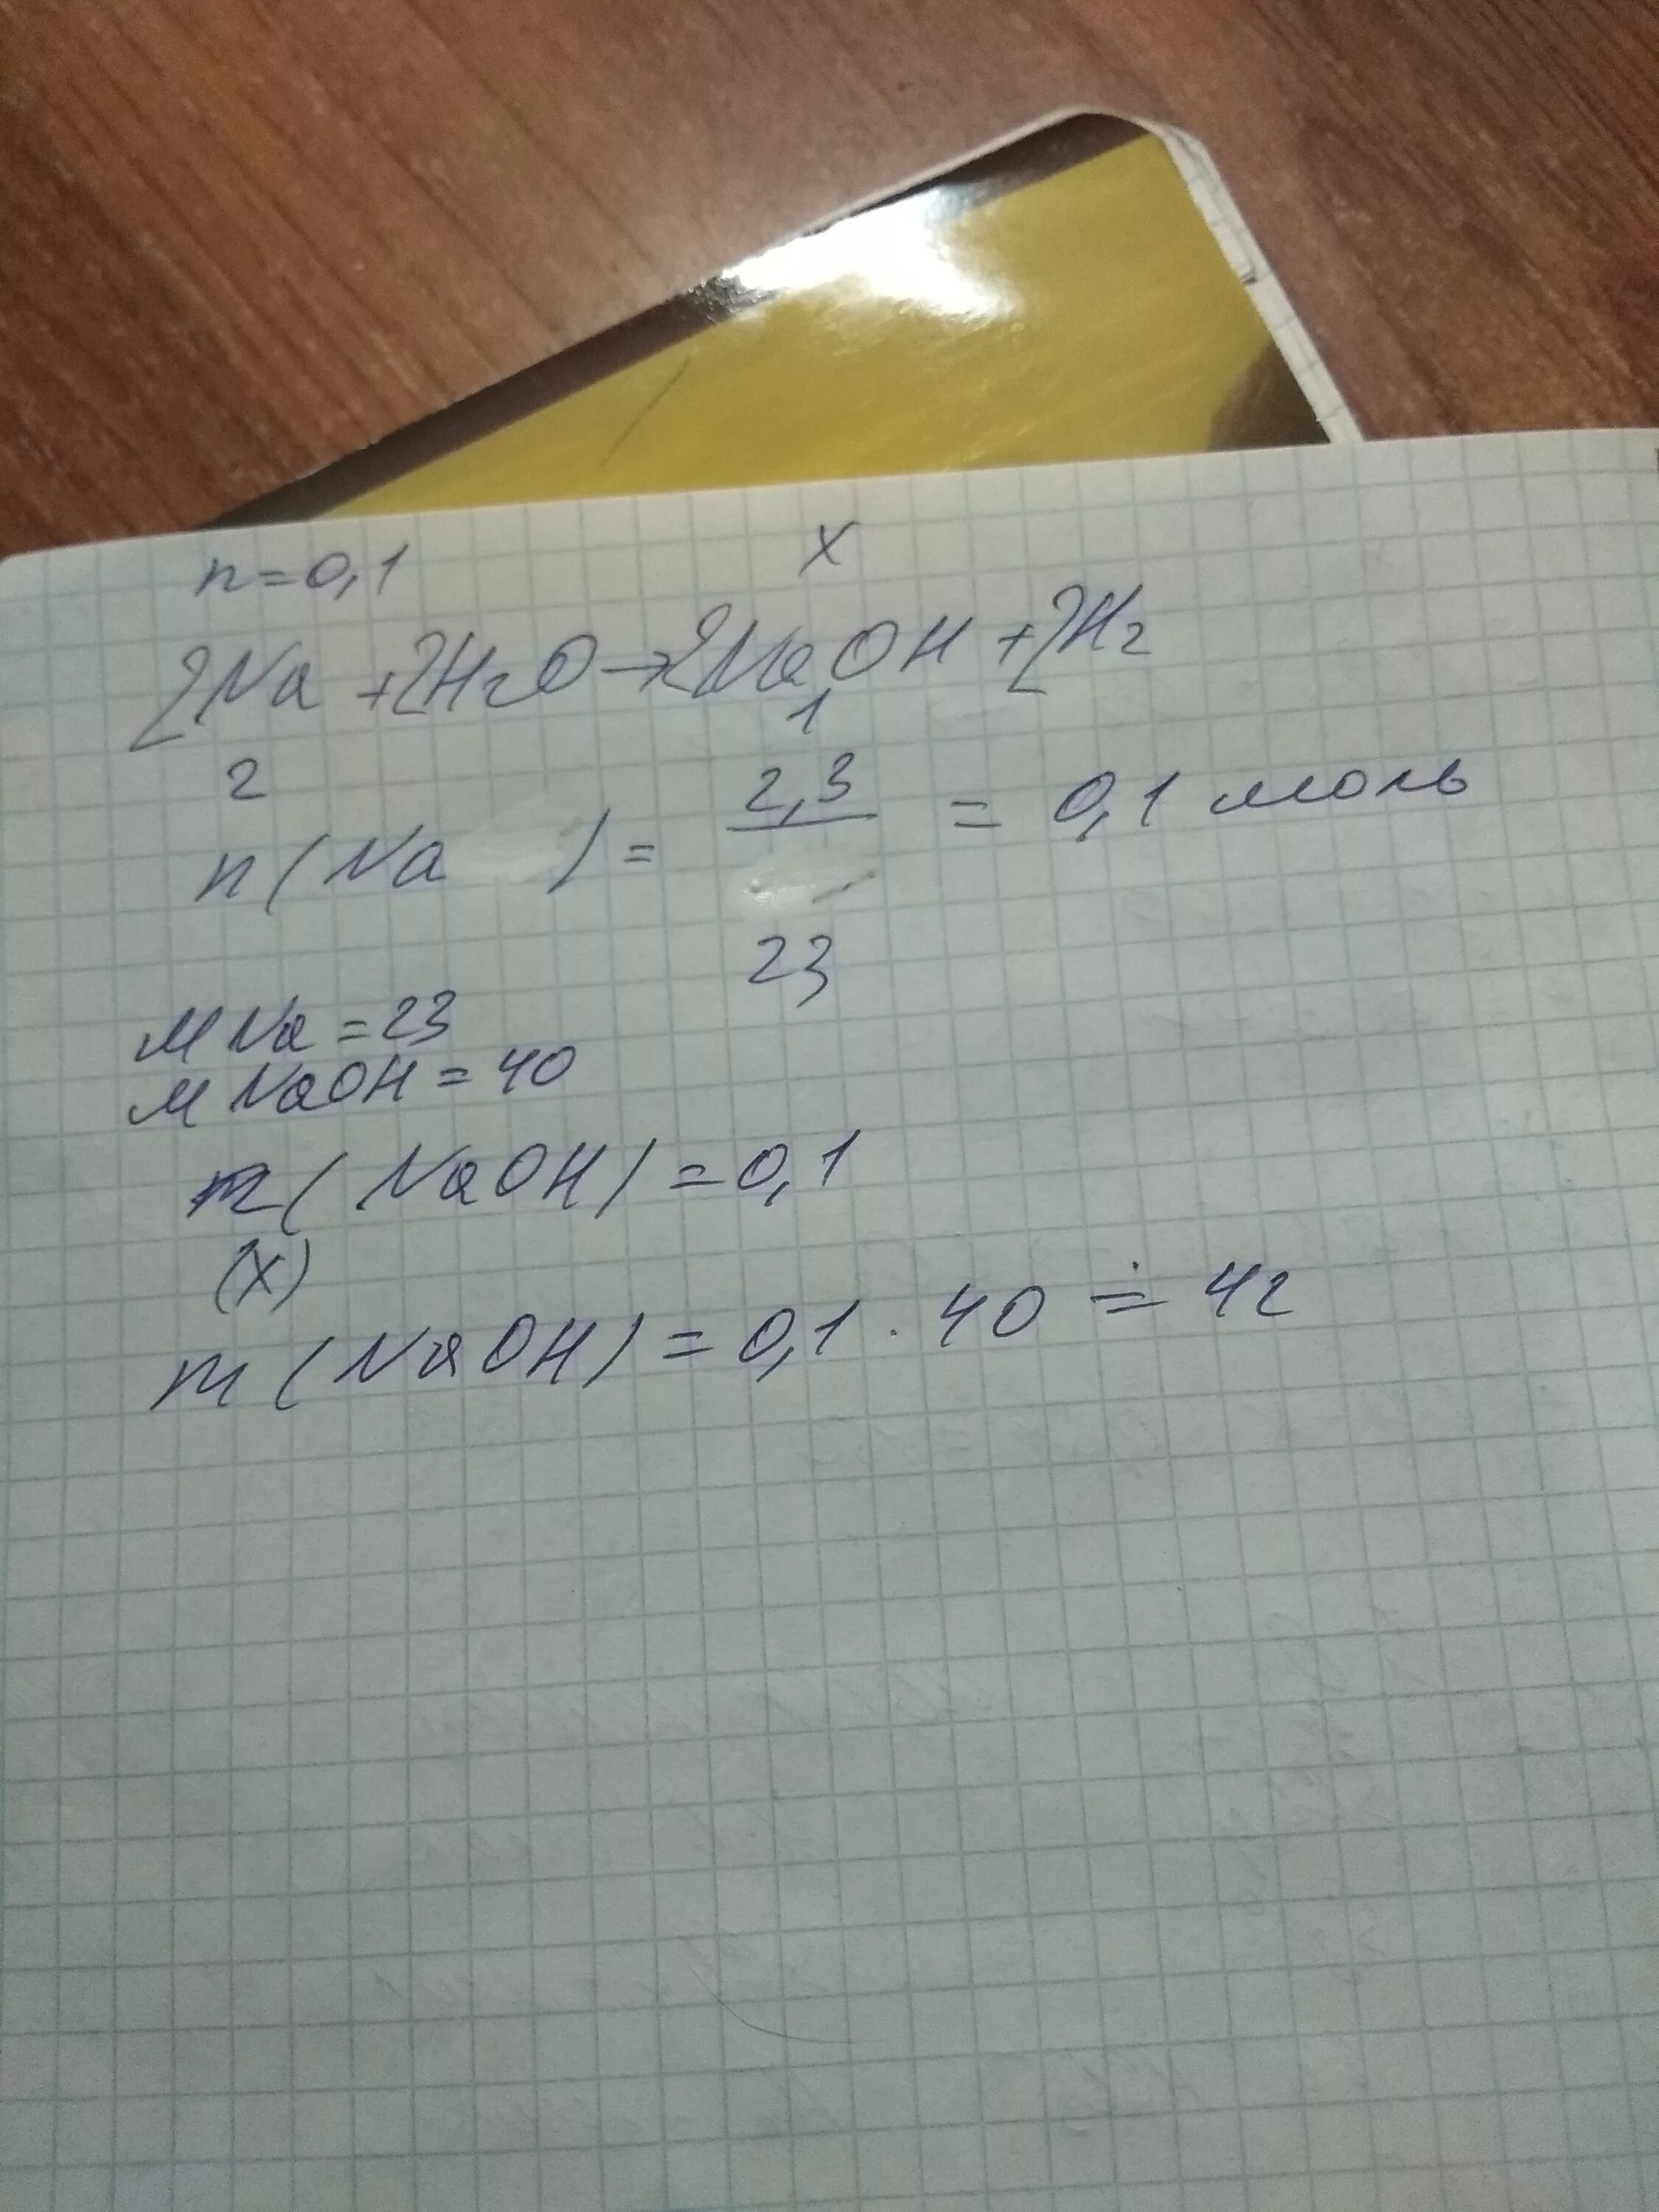 n=0,1 x
2Na +2H2O→2NaOH +2H2
2 1
n(Na ) = 2,3 / 23 = 0,1 моль
M Na = 23
M NaOH = 40
n( NaOH) = 0,1
(x)
m (NaOH) = 0,1 · 40 = 4г